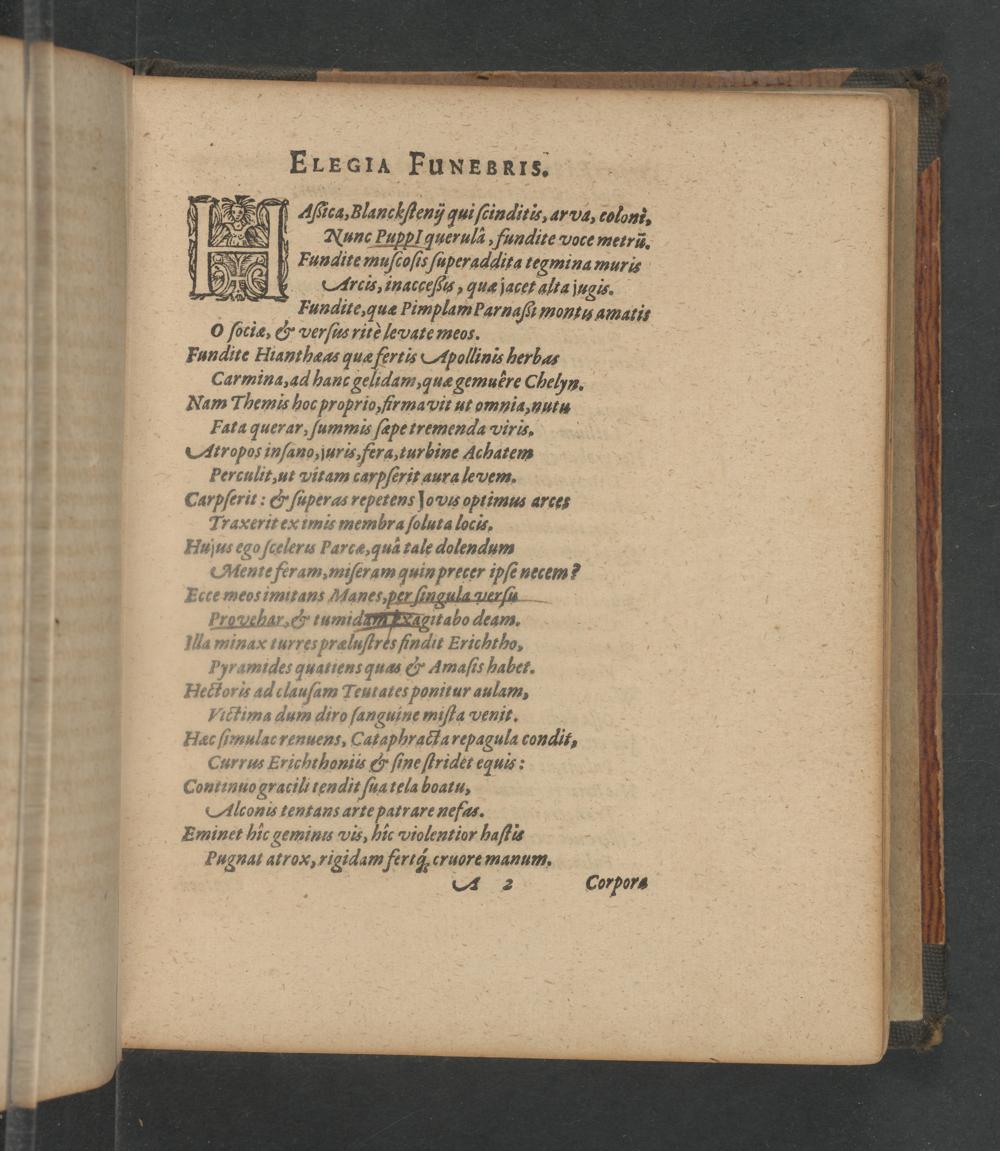 ELEGIA FUNEBRIS.
HAßica, Blanckſtenij qui ſcinditis, arva, coloni,
Nunc PuppI querulâ, fundite voce metrū.
Fundite muſcoſis ſuperaddita tegmina muris
Arcis, inacceßis, quæ jacet alta jugis.
Fundite, quæ Pimplam Parnaßi montis amatis
O ſociæ, & verſus ritè levate meos.
Fundite Hianthæas quæ fertis Apollinis herbas
Carmina, ad hanc gelidam, quæ gemuêre Chelyn.
Nam Themis hoc proprio, firmavit ut omnia, nutu
Fata querar, ſummis ſæpe tremenda viris.
Atropos inſano, juris, fera, turbine Achatem
Perculit, ut vitam carpſerit aura levem.
Carpſerit: & ſuperas repetens Jovis optimus arces
Traxerit ex imis membra ſoluta locis.
Hujus ego ſceleris Parcæ, quâ tale dolendum
Mente feram, miſeram quin precer ipſe necem?
Ecce meos imitans Manes, per ſingula verſu
Provehar, & tumidam exagitabo deam.
Illa minax turres præluſtres findit Erichtho,
Pyramides quatiens quas & Amaſis habet.
Hectoris ad clauſam Teutates ponitur aulam,
Victima dum diro ſanguine miſta venit.
Hæc ſimulac renuens, Cataphracta repagula condit,
Currus Erichthoniis & ſine ſtridet equis:
Continuo gracili tendit ſua tela boatu,
Alconis tentans arte patrare nefas.
Eminet hîc geminis vis, hîc violentior haſtis
Pugnat atrox, rigidam fertq́; cruore manum.
A 2 Corpora